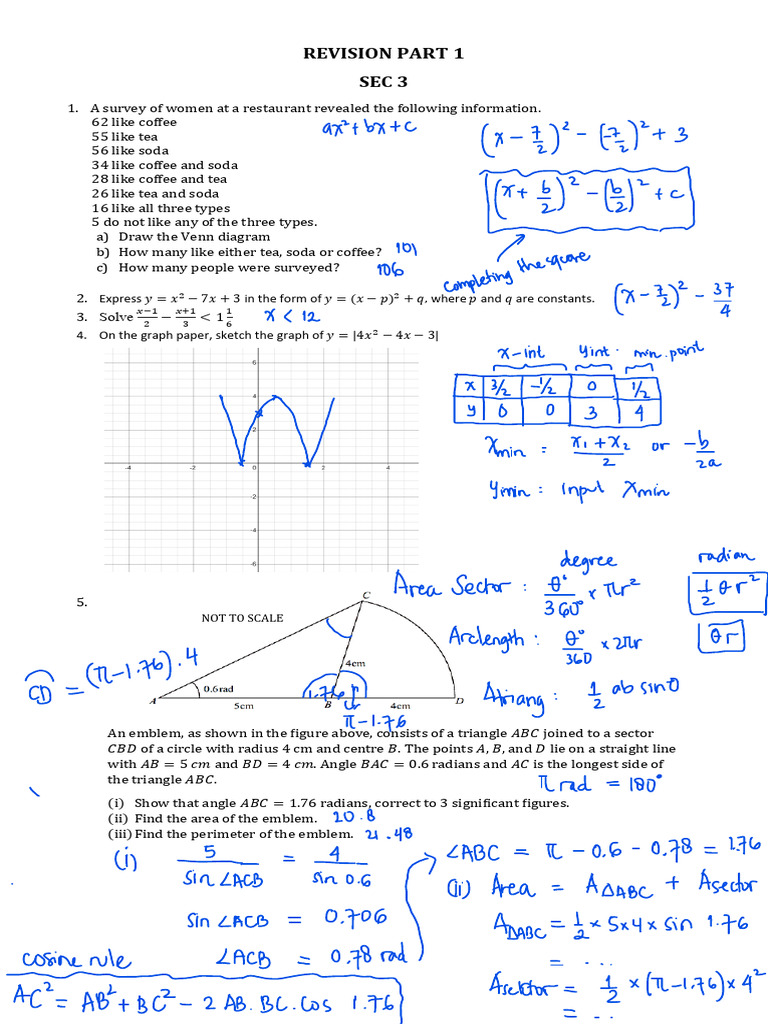 REVISION PART 1
SEC 3
1. A survey of women at a restaurant revealed the following information.
62 like coffee
55 like tea
56 like soda
34 like coffee and soda
28 like coffee and tea
26 like tea and soda
16 like all three types
5 do not like any of the three types.
a) Draw the Venn diagram
b) How many like either tea, soda or coffee? 101
c) How many people were surveyed? 106
ax² + bx + c
(x − 7/2)² − (−7/2)² + 3
(x + b/2)² − (b/2)² + c
completing the square
2. Express y = x² − 7x + 3 in the form of y = (x − p)² + q, where p and q are constants. (x − 7/2)² − 37/4
3. Solve (x−1)/2 − (x+1)/3 < 1 1/6 x < 12
4. On the graph paper, sketch the graph of y = |4x² − 4x − 3|
6
4
2
-4 -2 0 2 4
-2
-4
-6
x-int y int. min. point
x 3/2 -1/2 0 1/2
y 0 0 3 4
xmin = (x₁ + x₂)/2 or −b/2a
ymin : input xmin
degree radian
Area Sector : θ°/360° × πr² 1/2 θr²
Arclength : θ°/360 × 2πr θr
Atriang : 1/2 ab sinθ
5.
NOT TO SCALE
C
4cm
0.6rad
1.76 r
A 5cm B 4cm D
π − 1.76
CD = (π − 1.76) . 4
An emblem, as shown in the figure above, consists of a triangle ABC joined to a sector
CBD of a circle with radius 4 cm and centre B. The points A, B, and D lie on a straight line
with AB = 5 cm and BD = 4 cm. Angle BAC = 0.6 radians and AC is the longest side of
the triangle ABC.
π rad = 180°
(i) Show that angle ABC = 1.76 radians, correct to 3 significant figures.
(ii) Find the area of the emblem. 20.8
(iii) Find the perimeter of the emblem. 21.48
(i) 5/sin ∠ACB = 4/sin 0.6
sin ∠ACB = 0.706
∠ACB = 0.78 rad
∠ABC = π − 0.6 − 0.78 = 1.76
(ii) Area = A△ABC + Asector
A△ABC = 1/2 × 5 × 4 × sin 1.76
= ...
Asektor = 1/2 × (π − 1.76) × 4²
= ...
cosine rule
AC² = AB² + BC² − 2 AB. BC. cos 1.76